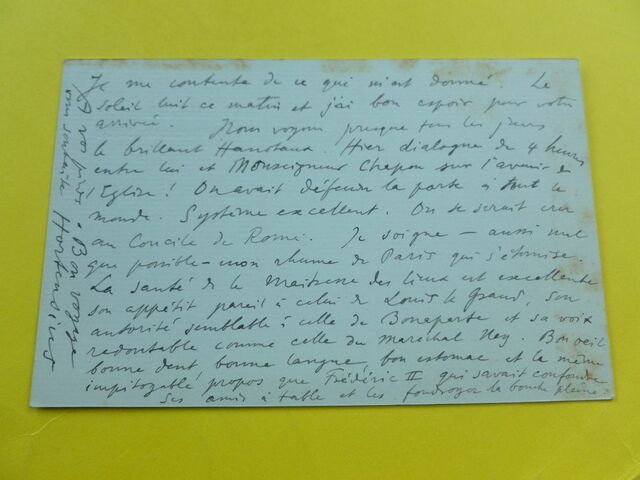 Je me contente de ce qui m'est donné. Le
soleil luit ce matin et j'ai bon espoir pour votre
arrivée. Nous voyons presque tous les jours
le brillant Hanotaux. Hier dialogue de 4 heures
entre lui et Monseigneur Chapon sur l'avenir de
l'Eglise! On avait défendu la porte à tout le
monde. Système excellent. On se serait cru
au Concile de Rome. Je soigne - aussi mal
que possible - mon rhume de Paris qui s'éternise.
La santé de la Maitresse des lieux est excellente
son appétit pareil à celui de Louis le Grand, son
autorité semblable à celle de Bonaparte et sa voix
redoutable comme celle du maréchal Ney. Bon oeil
bonne dent bonne langue, bon estomac et le même
impitoyable propos que Frédéric II qui savait confondre
ses amis à table et les foudroyer la bouche pleine.
Bon voyage